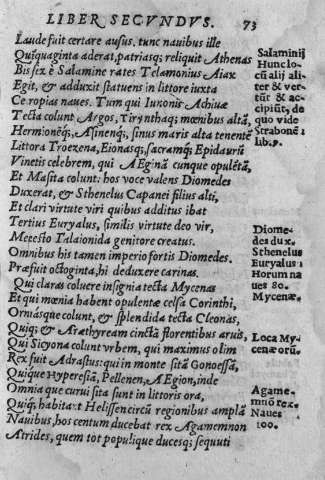 LIBER SECVNDVS. 73
Laude fuit certare ausus. tunc nauibus ille
Quīquaginta aderat, patriasq; reliquit Athenas
Bis sex è Salamine rates Telamonius Aiax
Egit, & adduxit statuens in littore iuxta
Cecropias naues. Tum qui Iunonis Achiuæ
Tecta colunt Argos, Tirynthaq; mœnibus altā,
Hermionēq;, Asinenq;, sinus maris alta tenentē
Littora Troezena, Eionasq;, sacramq; Epidaurū
Vinetis celebrem, qui AEginā cunque opulētā,
Et Masita colunt: hos voce valens Diomedes
Duxerat, & Sthenelus Capanei filius alti,
Et clari virtute viri quibus additus ibat
Tertius Euryalus, similis virtute deo vir,
Mecesio Talaionida genitore creatus.
Omnibus his tamen imperio fortis Diomedes.
Præfuit octoginta, hi deduxere carinas.
Qui claras coluere insignia tecta Mycenas
Et qui mœnia habent opulentæ celsa Corinthi,
Ornāsque colunt, & splendida tecta Cleonas,
Quiq; & Aræthyream cinctā florentibus aruis,
Qui Sicyona colunt vrbem, qui maximus olim
Rex fuit Adrastus: qui in monte sitā Gonoessā,
Quique Hyperesiā, Pellenen, AEgion, inde
Omnia que curui sita sunt in littoris ora,
Quiq; habitāt Helissen circū regionibus amplā
Nauibus, hos centum ducebat rex Agamemnon
Atrides, quem tot populique ducesq; sequuti
Salaminij
Hunc lo-
cū alij ali-
ter & ver-
tūt & ac-
cipiūt, de
quo vide
Strabonē
lib. 9.
Diome-
des dux.
Sthenelus
Euryalus
Horum na
ues 80.
Mycenæ.
Loca My-
cenæorū.
Agame-
mnō rex.
Naues
100.